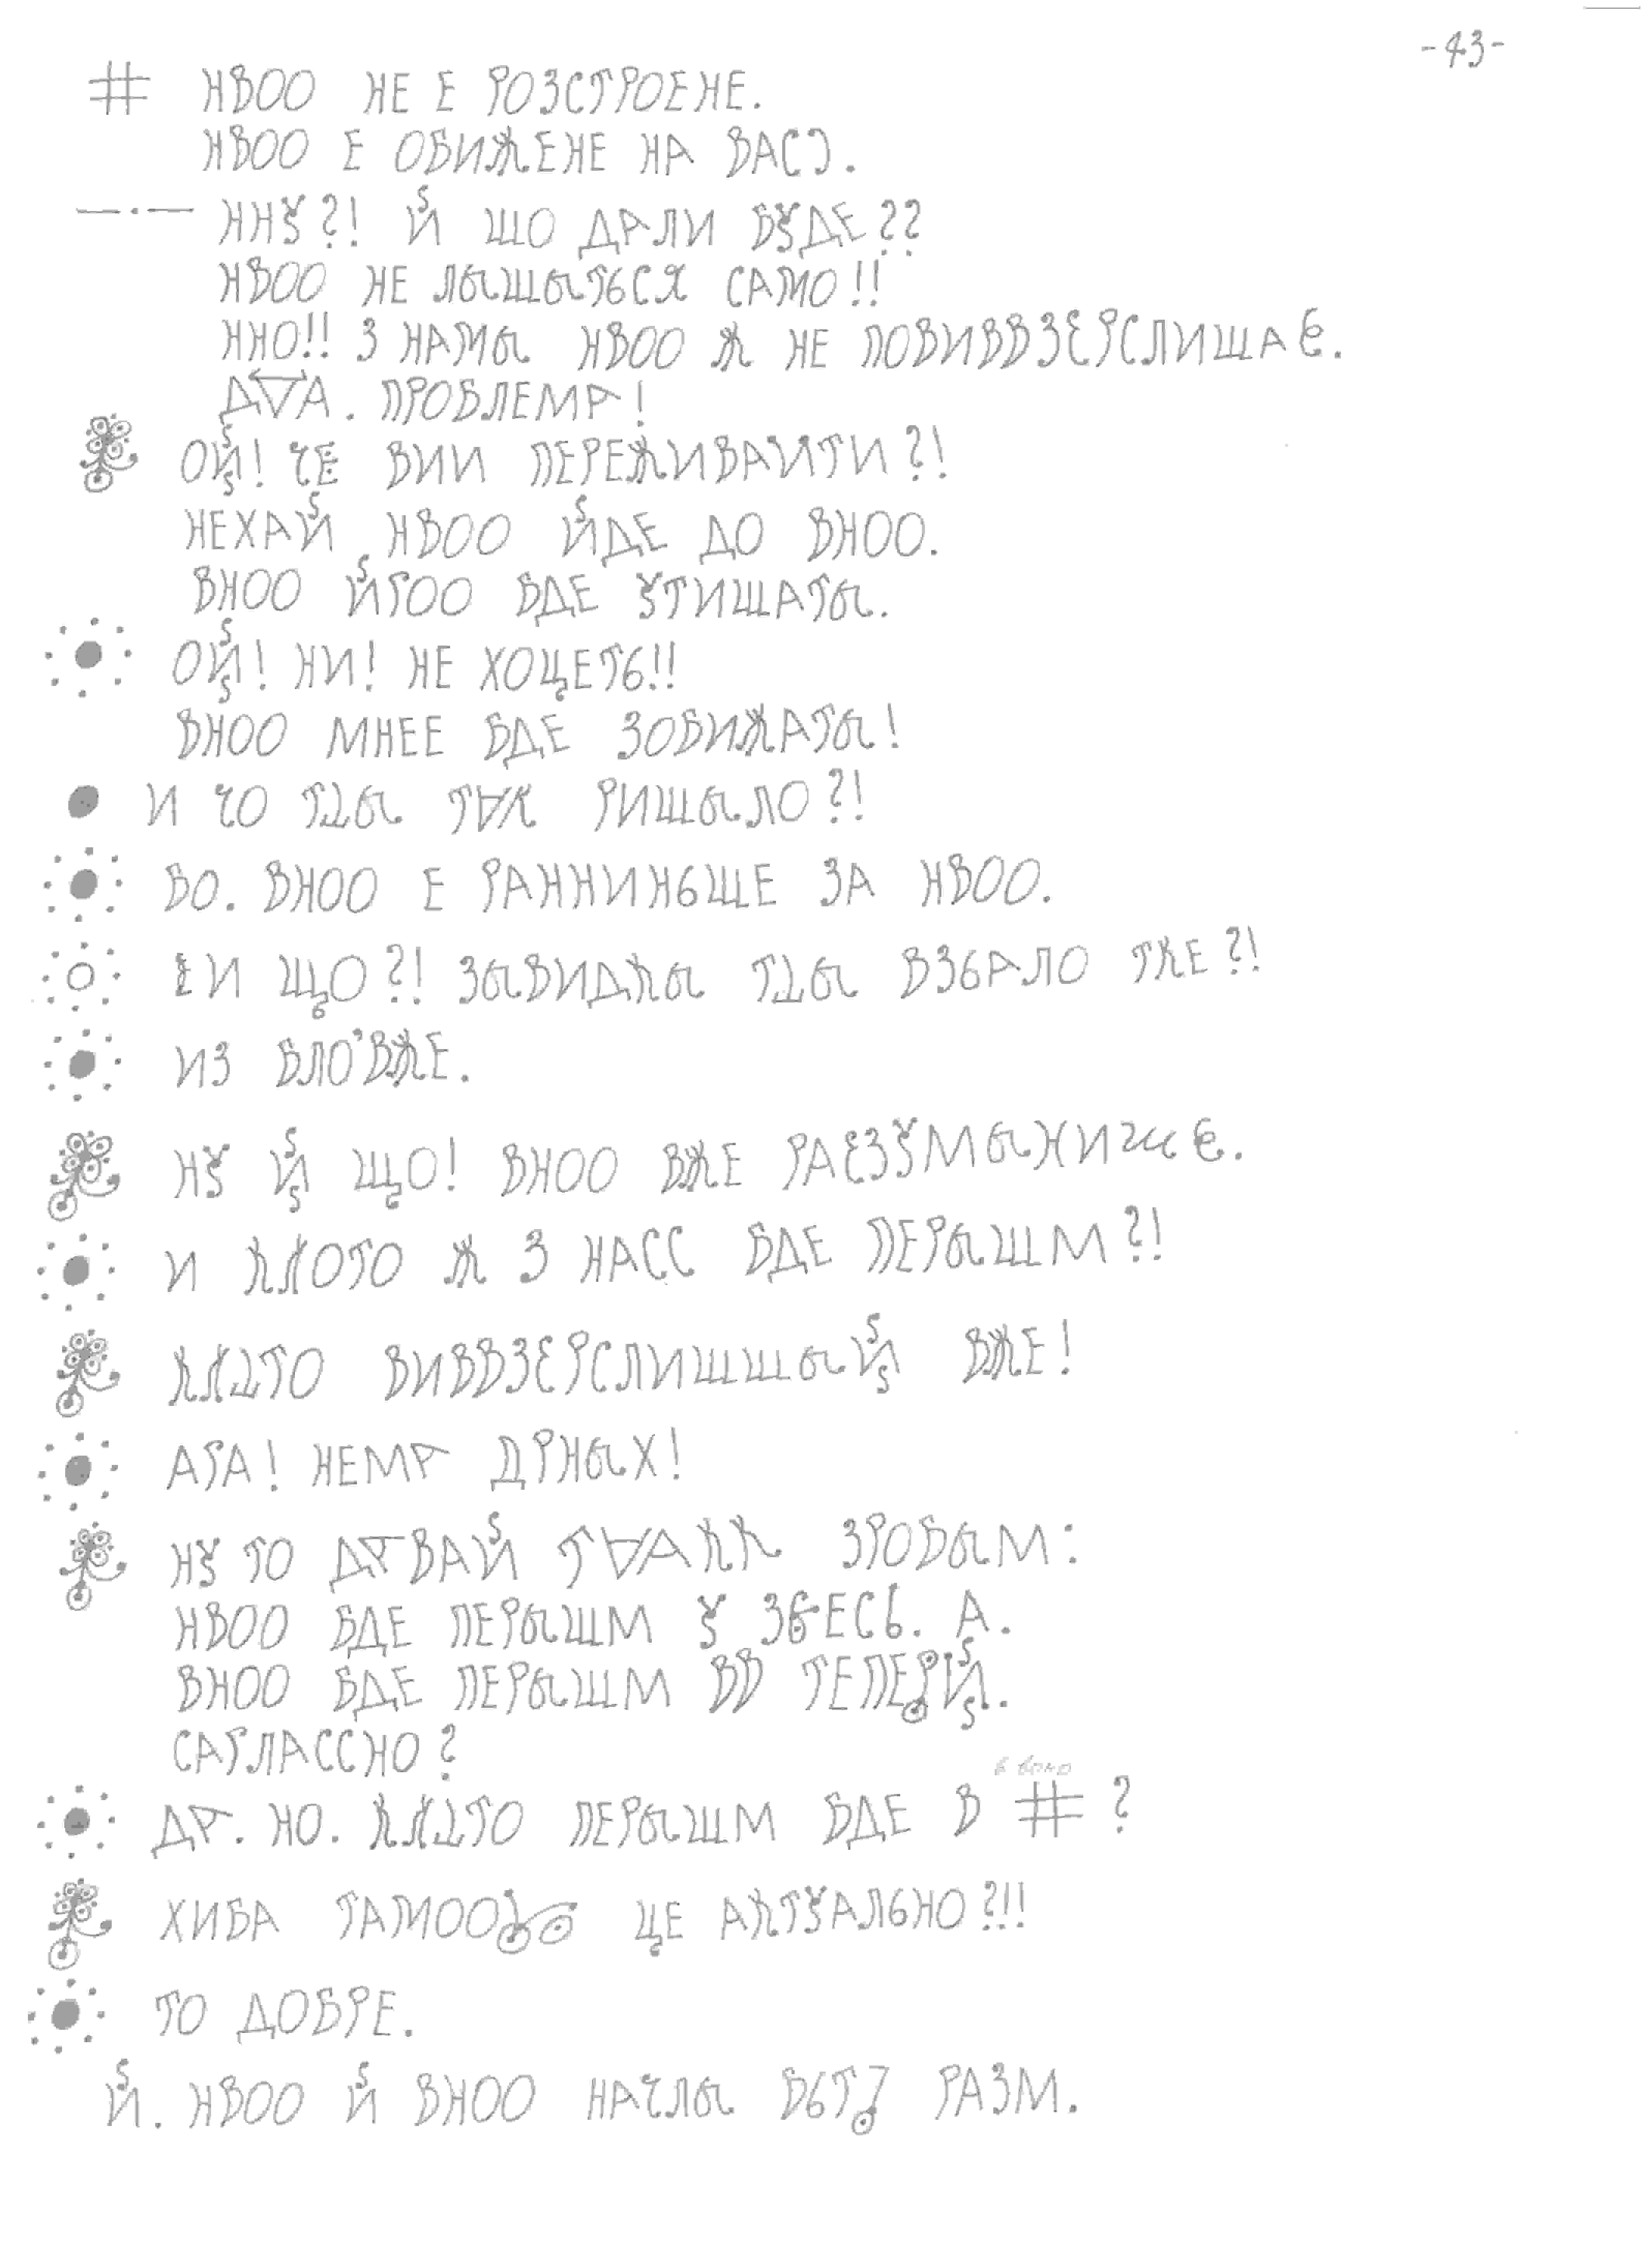 -43-
# НВОО НЕ Е РОЗСТРОЕНЕ.
НВОО Е ОБИЖЕНЕ НА ВАС.
—·— ННУ?! Й ШО ДАЛИ БУДЕ??
НВОО НЕ ЛЫШЫТЬСЯ САМО!!
ННО!! З НАМЫ НВОО Ж НЕ ПОВИВВЗЄРСЛИШАЄ.
ДАА. ПРОБЛЕМА!
ОЙ! ЧЕ ВИИ ПЕРЕЖИВАИТИ?!
НЕХАЙ НВОО ЙДЕ ДО ВНОО.
ВНОО ЙГОО БДЕ УТИШАТЫ.
ОЙ! НИ! НЕ ХОЦЕТЬ!!
ВНОО МНЕЕ БДЕ ЗОБИЖАТЫ!
И ЧО ТЫ ТАК РИШЫЛО?!
БО. ВНОО Е РАННИНЬШЕ ЗА НВОО.
И ЩО?! ЗЫВИДКЫ ТЫ ВЗЬАЛО ТКЕ?!
ИЗ БЛО'ВЖЕ.
НУ Й ЩО! ВНОО ВЖЕ РАЄЗУМЫНИШЕ.
И ККОТО Ж З НАСС БДЕ ПЕРЫШМ?!
ККТО ВИВВЗЄРСЛИШШЫЙ ВЖЕ!
АГА! НЕМА ДРНЫХ!
НУ ТО ДАВАЙ ТААКК ЗРОБЫМ:
НВОО БДЕ ПЕРЫШМ У ЗЄЕСЬ. А.
ВНОО БДЕ ПЕРЫШМ ВВ ТЕПЕРЙ.
САГЛАССНО?
ДА. НО. ККТО ПЕРЫШМ БДЕ В # ?
в воно
ХИБА ТАМОО ЦЕ АКТУАЛЬНО?!!
ТО ДОБРЕ.
Й. НВОО Й ВНОО НАЧЛЫ РАЗМ.